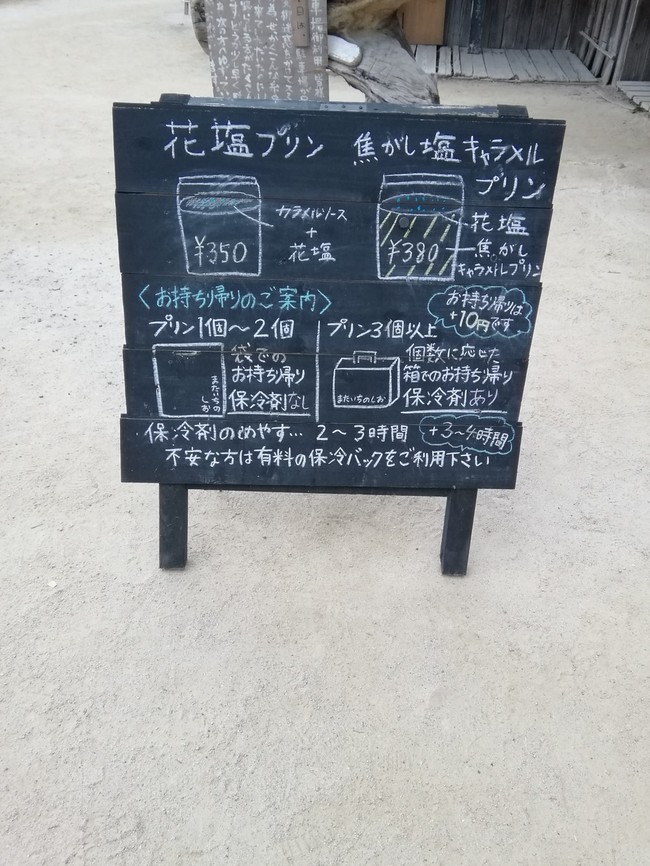 花塩プリン
焦がし塩キャラメル
プリン
カラメルソース
+
花塩
¥350
¥380
花塩
焦がし
キャラメルプリン
〈お持ち帰りのご案内〉
お持ち帰りは
+10円です
プリン1個〜2個
プリン3個以上
またいちの
しお
袋での
お持ち帰り
保冷剤なし
またいちのしお
個数に応じた
箱でのお持ち帰り
保冷剤あり
保冷剤のめやす… 2〜3時間
+3〜4時間
不安な方は有料の保冷バックをご利用下さい